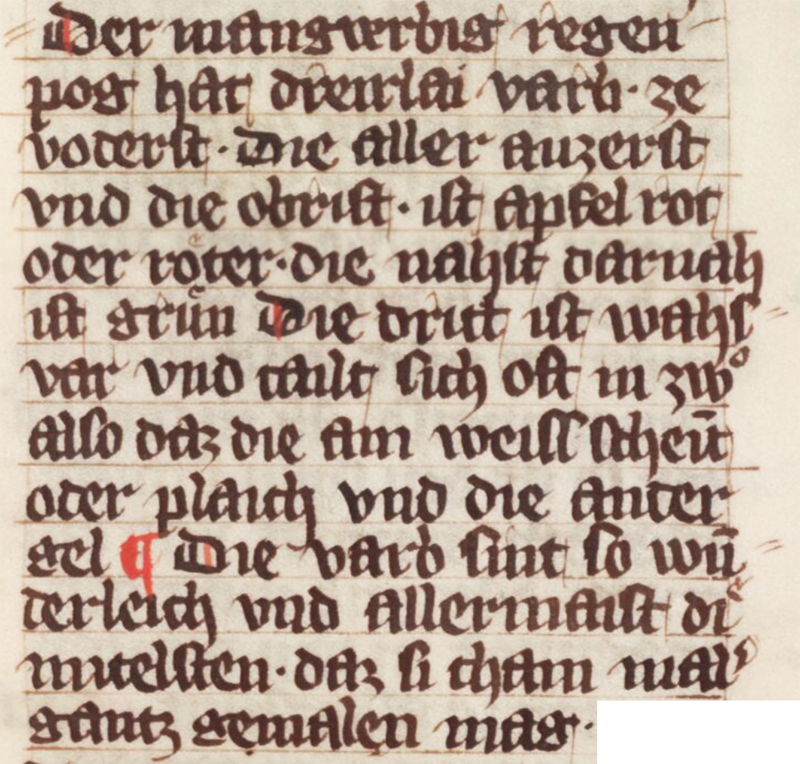 Der mangverbig regen
pog hat dreirlai varb· ze
voderst· Die aller auzerst
vnd die obrist· ist apfel rot
oder roͤter· die nahst darnah
ist gruͤn Die dritt ist wahs
var vnd tailt sich oft in zwo
also daz die am weiss scheīt
oder plaich vnd die ander
gel ¶ Die varb sint so wū
derleich vnd allermaist di
mitelsten· daz si cham mal
gantz gemalen mag·